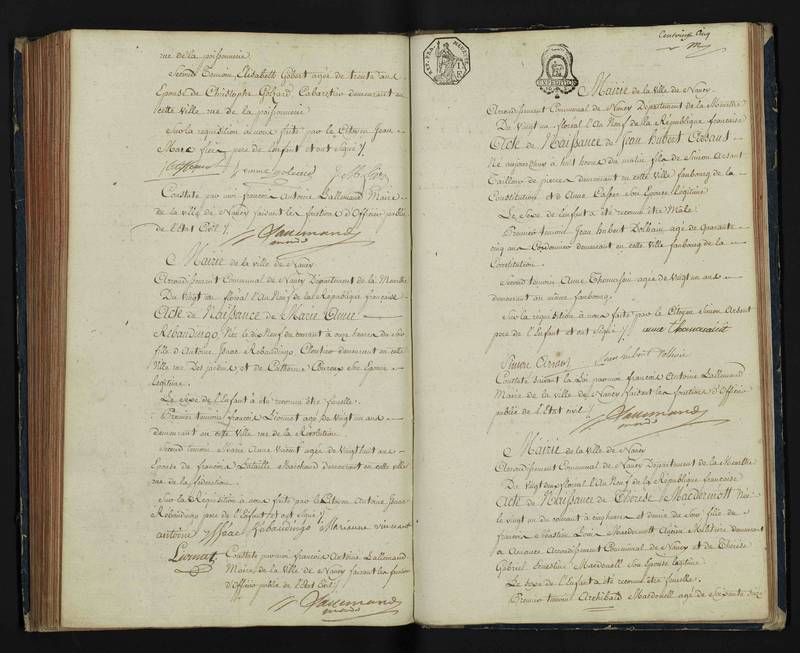 rue de la poissonnerie
Second temoin Elisabeth Gobert agée de trente ans
Epouse de Christophe Cabaretier demeurant en
cette ville rue de la poissonnerie
Sur la requisition à nous faite par le Citoyen Jean
Marc pere de l'enfant et ont signé
Constaté par moi françois Antoine Lallemand Maire
de la ville de Nancy faisant les fonctions d'Officier public
de l'Etat Civil
Lallemand
Mairie de la ville de Nancy
Arrondissement Communal de Nancy Département de la Meurthe
Du Vingt un floréal l'An Neuf de la République française
Acte de Naissance de Marie Anne
Rebandingo Née le dix Neuf du courant à onze heures du soir
fille d'Antoine Isaac Rebandingo Cloutier demeurant en cette
Ville rue Des jardins et de Catherine son Epouse
legitime
Le sexe de l'Enfant à été reconnu être femelle
Premier temoin françois Liennet agé de vingt un ans
demeurant en cette Ville rue de la Révolution
Second temoin Marie Anne Vincent agée de vingt huit ans
Epouse de françois Bataille Marchand demeurant en cette ville
rue de la fédération
Sur la Réquisition à nous faite par le Citoyen Antoine Isaac
Rebandingo pere de l'Enfant et ont signé
antoine yssac Rebandingo Marianne vincent
Constaté par moi françois Antoine Lallemand
Maire de la Ville de Nancy faisant les fonctions
d'Officier public de l'Etat Civil
Lallemand
Cent vingt Cinq
REP. FRA.
EXPEDITION
Mairie de la Ville de Nancy
Arrondissement Communal de Nancy Département de la Meurthe
Du Vingt un floréal l'An Neuf de la République française
Acte de Naissance de Jean hubert Arsant
Né aujourd'hui à huit heures du matin fils de Simon Arsant
Tailleur de pierres demeurant en cette Ville faubourg de la
Constitution et d'Anne son Epouse legitime
Le Sexe de l'enfant à été reconnu être Male
Premier temoin Jean hubert Dolhain agé de quarante
cinq ans Cordonnier demeurant en cette Ville faubourg de la
Constitution
Second temoin Anne Thomassin agée de vingt un ans
demeurant au même faubourg
Sur la requisition à nous faite par le Citoyen Simon Arsant
pere de l'Enfant et ont signé
Constaté suivant la Loi par moi françois Antoine Lallemand
Maire de la ville de Nancy faisant les fonctions d'Officier
public de l'Etat civil
Lallemand
Mairie de la Ville de Nancy
Arrondissement Communal de Nancy Département de la Meurthe
Du Vingt deux floréal l'An Neuf de la République française
Acte de Naissance de Thérèse de Macdermott Née
le vingt un du courant à cinq heures et demie du soir fille de
françois Sébastien Louis Macdermott Agent Militaire demeurant
à Amance Arrondissement Communal de Nancy et de Thérèse
Gabriel Ernestine Macdonell son Epouse legitime
Le Sexe de l'Enfant à été reconnu être femelle
Premier temoin Archibald Macdonell agé de soixante dix